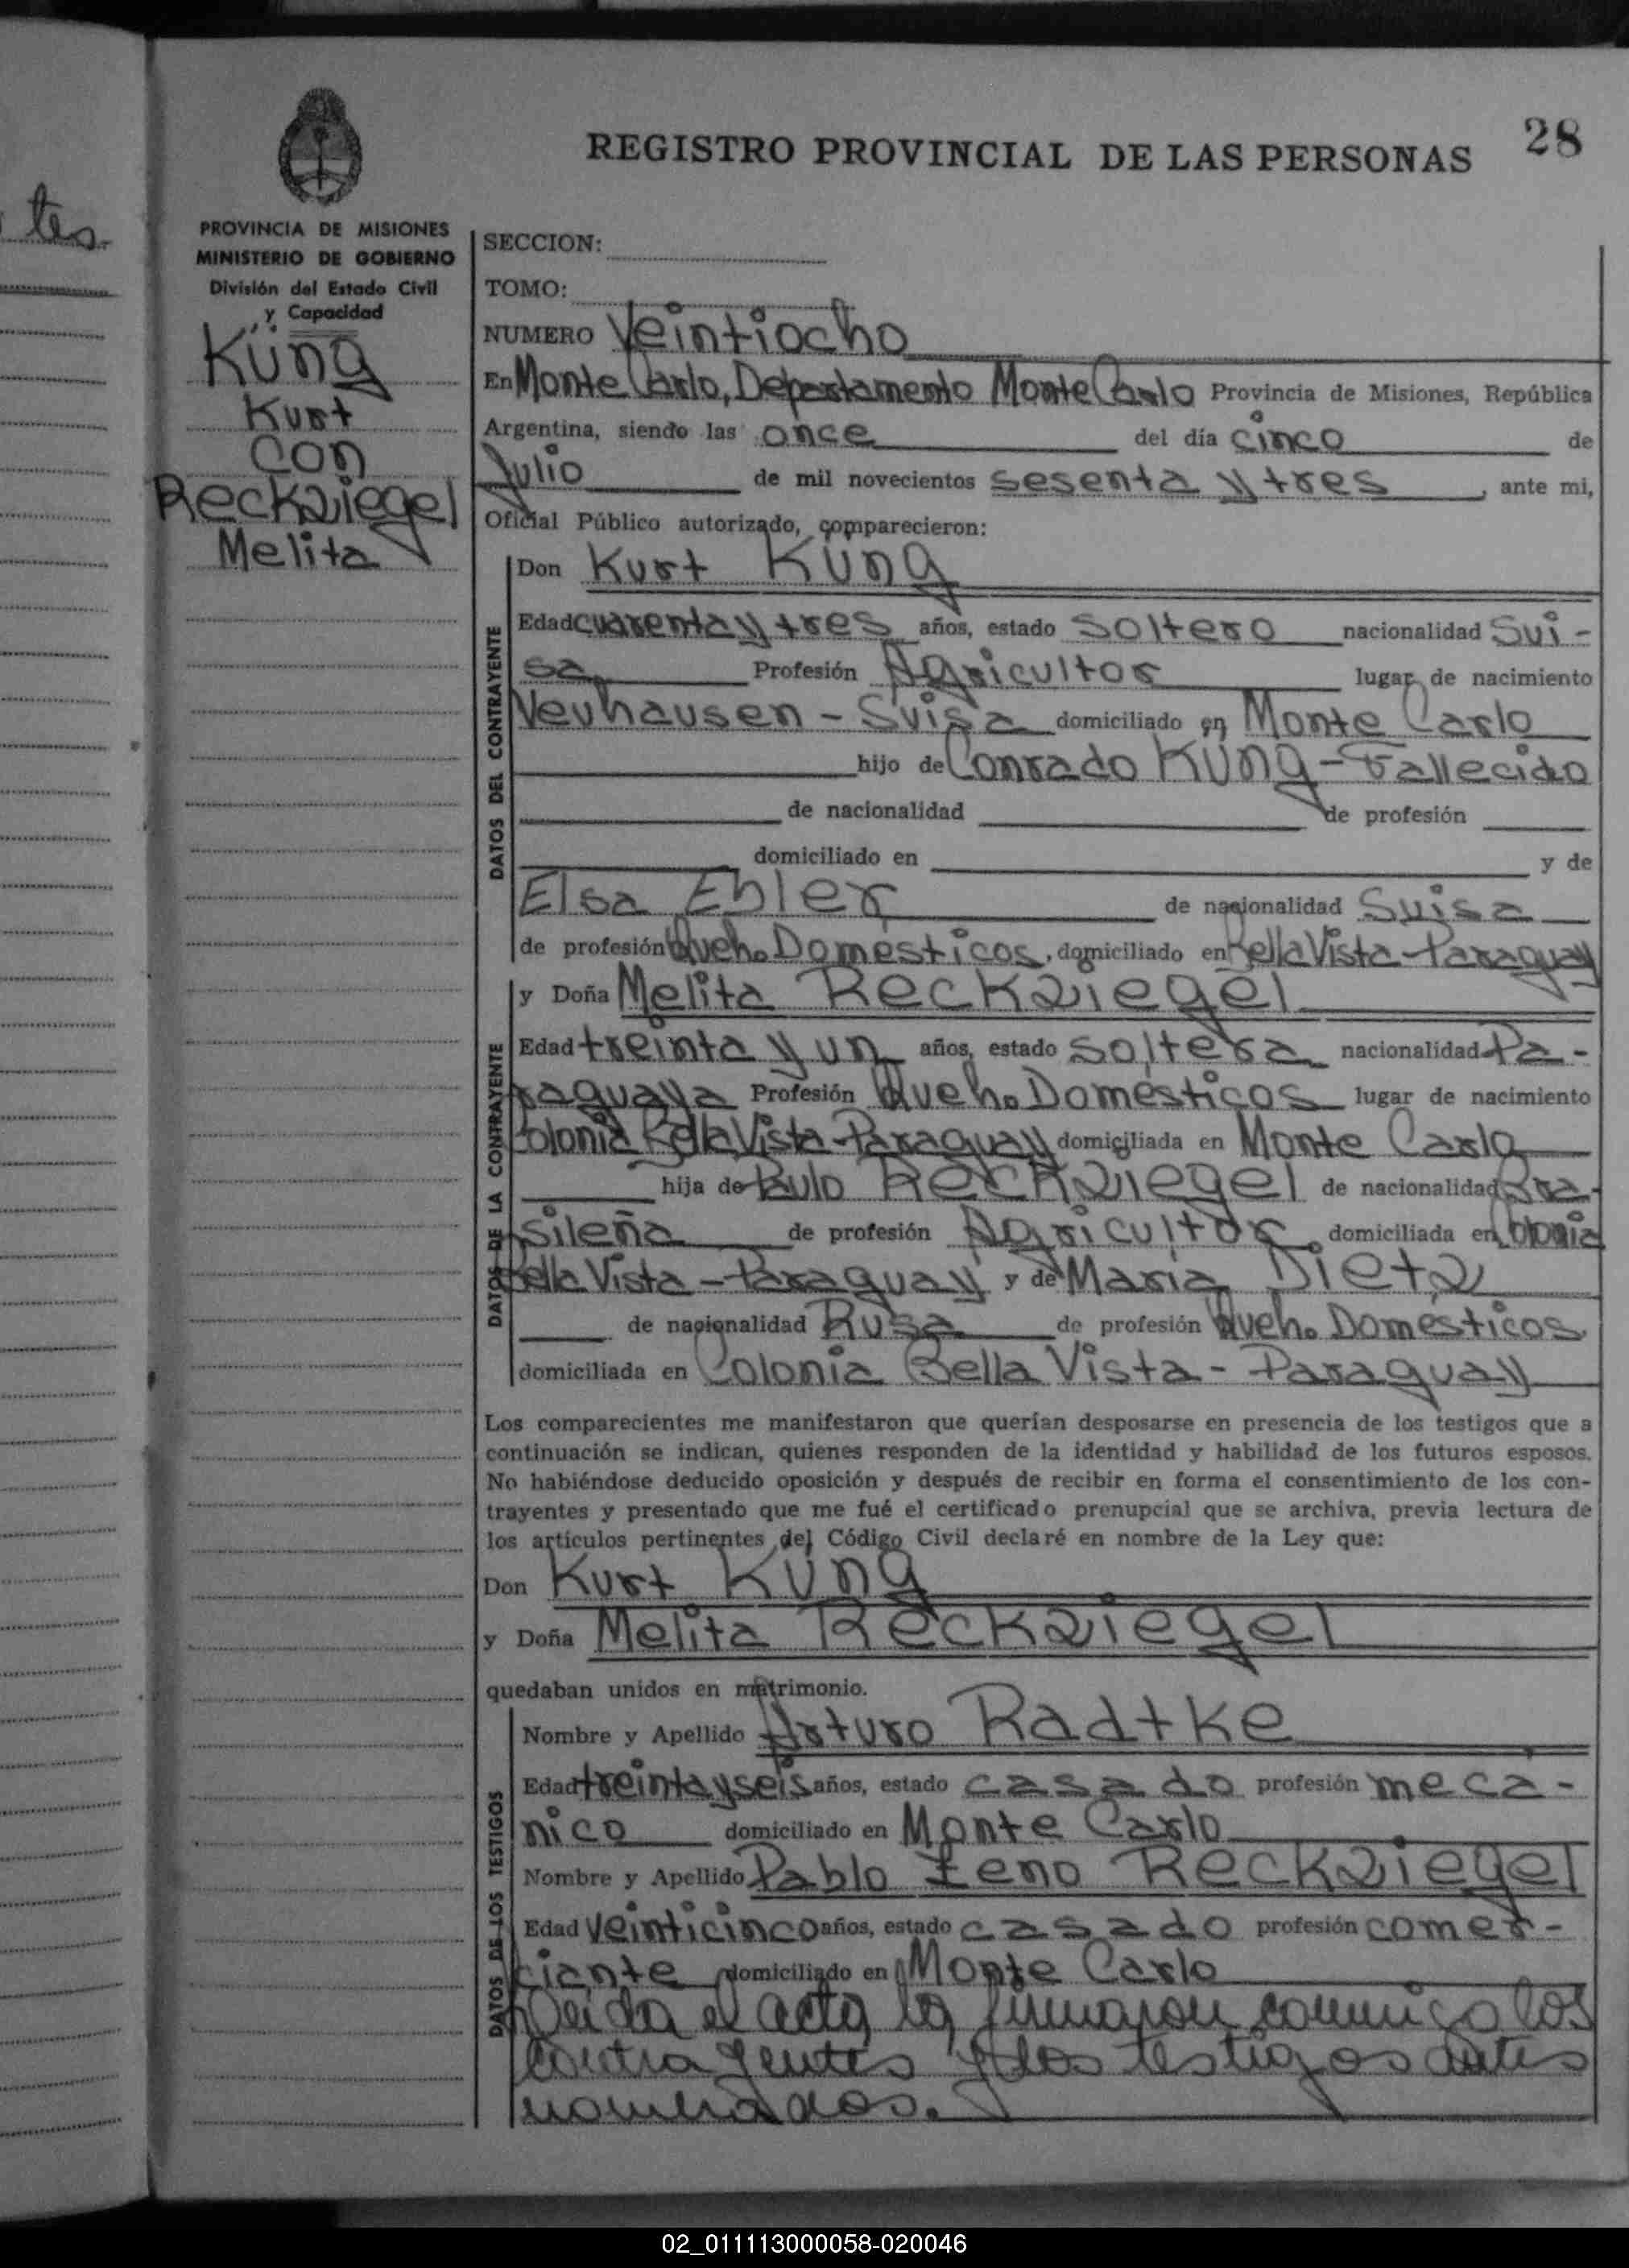 tes.
28
REGISTRO PROVINCIAL DE LAS PERSONAS
PROVINCIA DE MISIONES
MINISTERIO DE GOBIERNO
División del Estado Civil
y Capacidad
Küng
Kurt
con
Reckziegel
Melita
SECCION:
TOMO:
NUMERO Veintiocho
En Monte Carlo, Departamento Monte Carlo Provincia de Misiones, República
Argentina, siendo las once del día cinco de
Julio de mil novecientos sesenta y tres, ante mi,
Oficial Público autorizado, comparecieron:
DATOS DEL CONTRAYENTE
Don Kurt Küng
Edad cuarenta y tres años, estado soltero nacionalidad Sui-
sa Profesión Agricultor lugar de nacimiento
Neuhausen - Suisa domiciliado en Monte Carlo
hijo de Conrado Küng - Fallecido
de nacionalidad de profesión
domiciliado en y de
Elsa Ebler de nacionalidad Suisa
de profesión Queh. Domésticos, domiciliado en Bella Vista - Paraguay
DATOS DE LA CONTRAYENTE
y Doña Melita Reckziegel
Edad treinta y un años, estado soltera nacionalidad Pa-
raguaya Profesión Queh. Domésticos lugar de nacimiento
Colonia Bella Vista - Paraguay domiciliada en Monte Carlo
hija de Paulo Reckziegel de nacionalidad Bra-
sileña de profesión Agricultor domiciliada en Colonia
Bella Vista - Paraguay y de Maria Dietz
de nacionalidad Rusa de profesión Queh. Domésticos
domiciliada en Colonia Bella Vista - Paraguay
Los comparecientes me manifestaron que querían desposarse en presencia de los testigos que a
continuación se indican, quienes responden de la identidad y habilidad de los futuros esposos.
No habiéndose deducido oposición y después de recibir en forma el consentimiento de los con-
trayentes y presentado que me fué el certificado prenupcial que se archiva, previa lectura de
los artículos pertinentes del Código Civil declaré en nombre de la Ley que:
Don Kurt Küng
y Doña Melita Reckziegel
quedaban unidos en matrimonio.
DATOS DE LOS TESTIGOS
Nombre y Apellido Arturo Radtke
Edad treinta y seis años, estado casado profesión mecá-
nico domiciliado en Monte Carlo
Nombre y Apellido Pablo Zeno Reckziegel
Edad veinticinco años, estado casado profesión comer-
ciante domiciliado en Monte Carlo
Leida el acta la firmaron conmigo los
contrayentes y los testigos antes
nombrados.
02_011113000058-020046